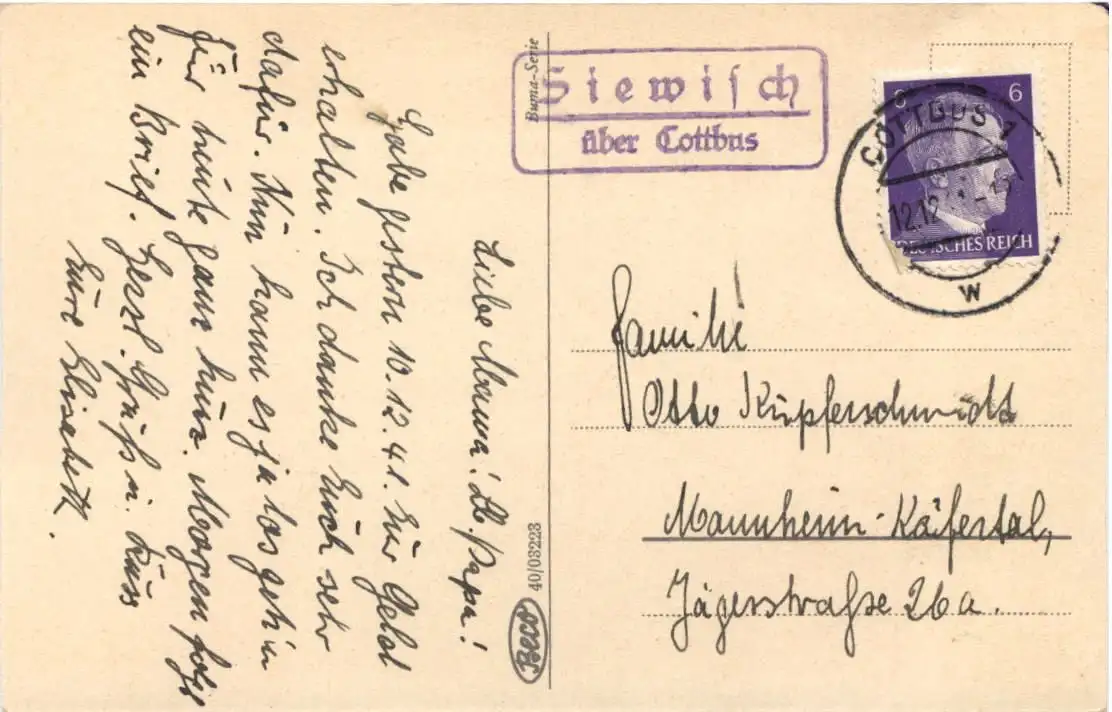 Buma-Serie
Siewisch
über Cottbus
6 6
COTTBUS 1
12.12
DEUTSCHES REICH
w
Liebe Mama! Lb. Papa!
Habe gestern 10.12.41. Eur Geld
erhalten. Ich danke Euch sehr
dafür. Nun kann es ja losgehn
Für heute ganz kurz. Morgen folgt
ein Brief. Herzl. Grüß u. Kuss
Eure Elisabeth.
Familie
Otto Kupferschmidt
Mannheim-Käfertal,
Jägerstraße 26a.
40/03223
Beco